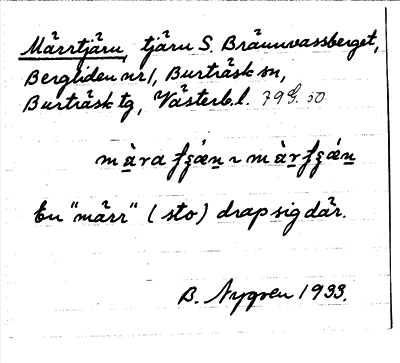 Märrtjärn, tjärn S. Brännvassberget,
Bergliden nr 1, Burträsk sn,
Burträsk tg, Västerb. l. 79 G. 50
mära fʒǽn ~ mär fʒǽn
En "märr" (sto) drap sig där.
B. Nygren 1933.